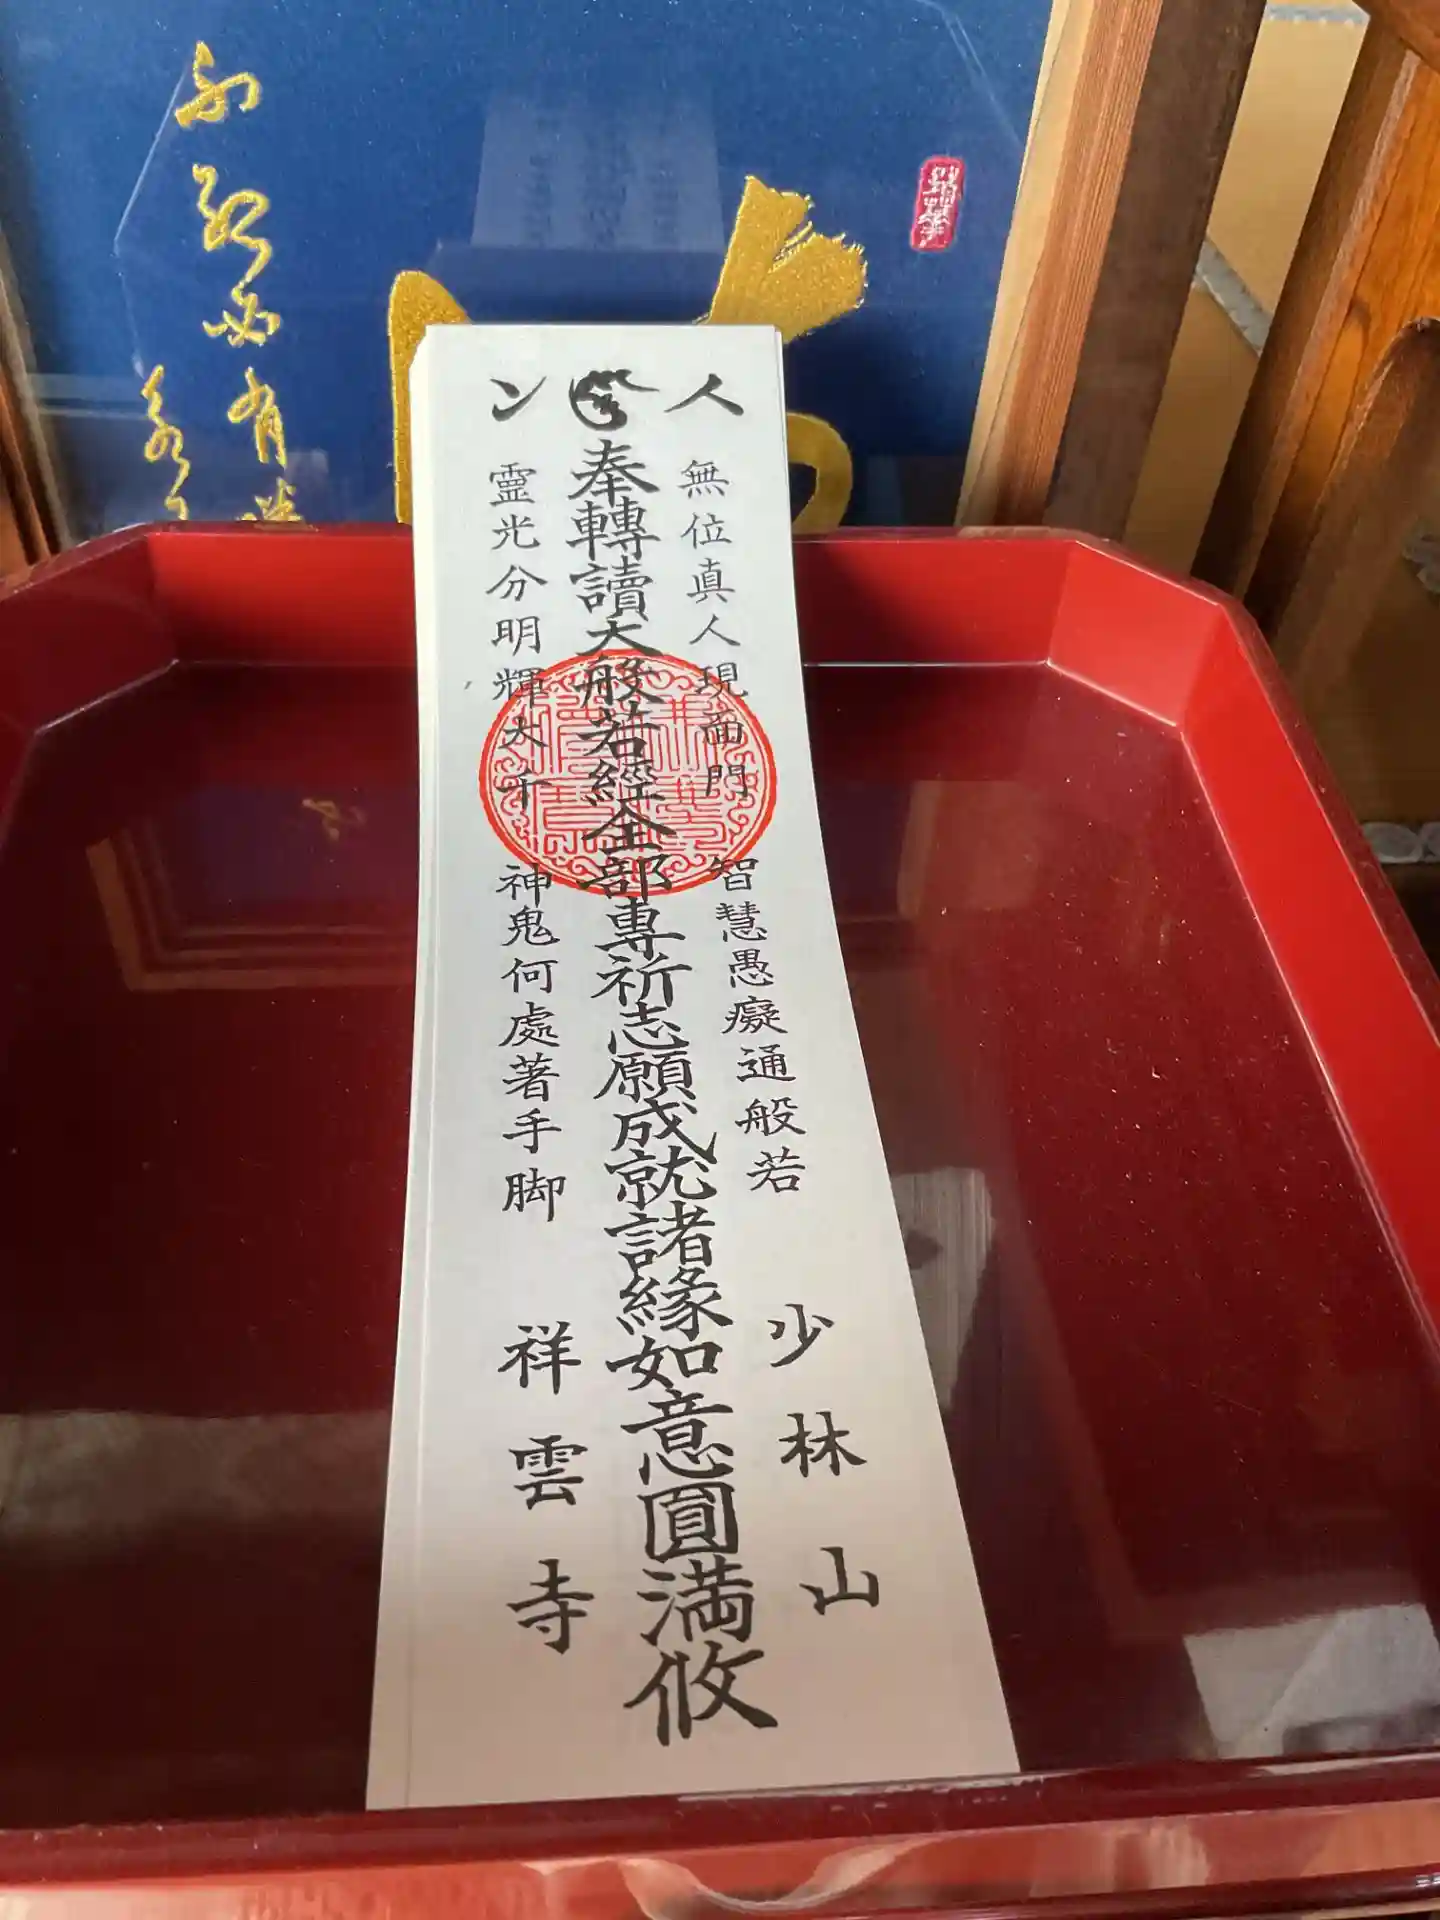 無位真人現面門 智慧愚癡通般若
少林山
奉轉讀大般若經全部專祈志願成就諸緣如意圓満攸
靈光分明輝大千 神鬼何處著手脚
祥雲寺